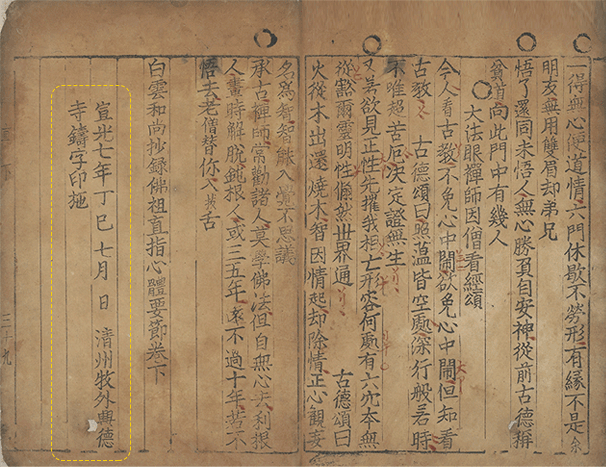 一得無心便道情六門休歇不勞形有緣不是余
朋友無用雙眉却弟兄
悟了還同未悟人無心勝負自安神從前古德稱
貧道向此門中有幾人
大法眼禪師因僧看經頌
今人看古敎不免心中鬧欲免心中鬧但知看
古敎 古德頌曰照蘊皆空處深行般若時
不唯超苦厄決定證無生
又若欲見正性先摧我相亡形容何處有六穴本無
從豁爾靈明性翛然世界通 古德頌曰
火從木出還燒木智因情起却除情正心觀妄
名爲智智能入覺不思議
承古禪師常勸諸人莫學佛法但自無心去利根
人晝時解脫鈍根人或三五年遠不過十年若不
悟去老僧替你入拔舌
白雲和尙抄錄佛祖直指心體要節卷下
宣光七年丁巳七月 日 淸州牧外興德
寺鑄字印施
三十九